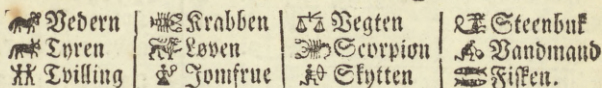 Vedern Krabben Vegten Steenbuk
Tyren Løven Scorpion Vandmand
Tvilling Jomfrue Skytten Fisken.